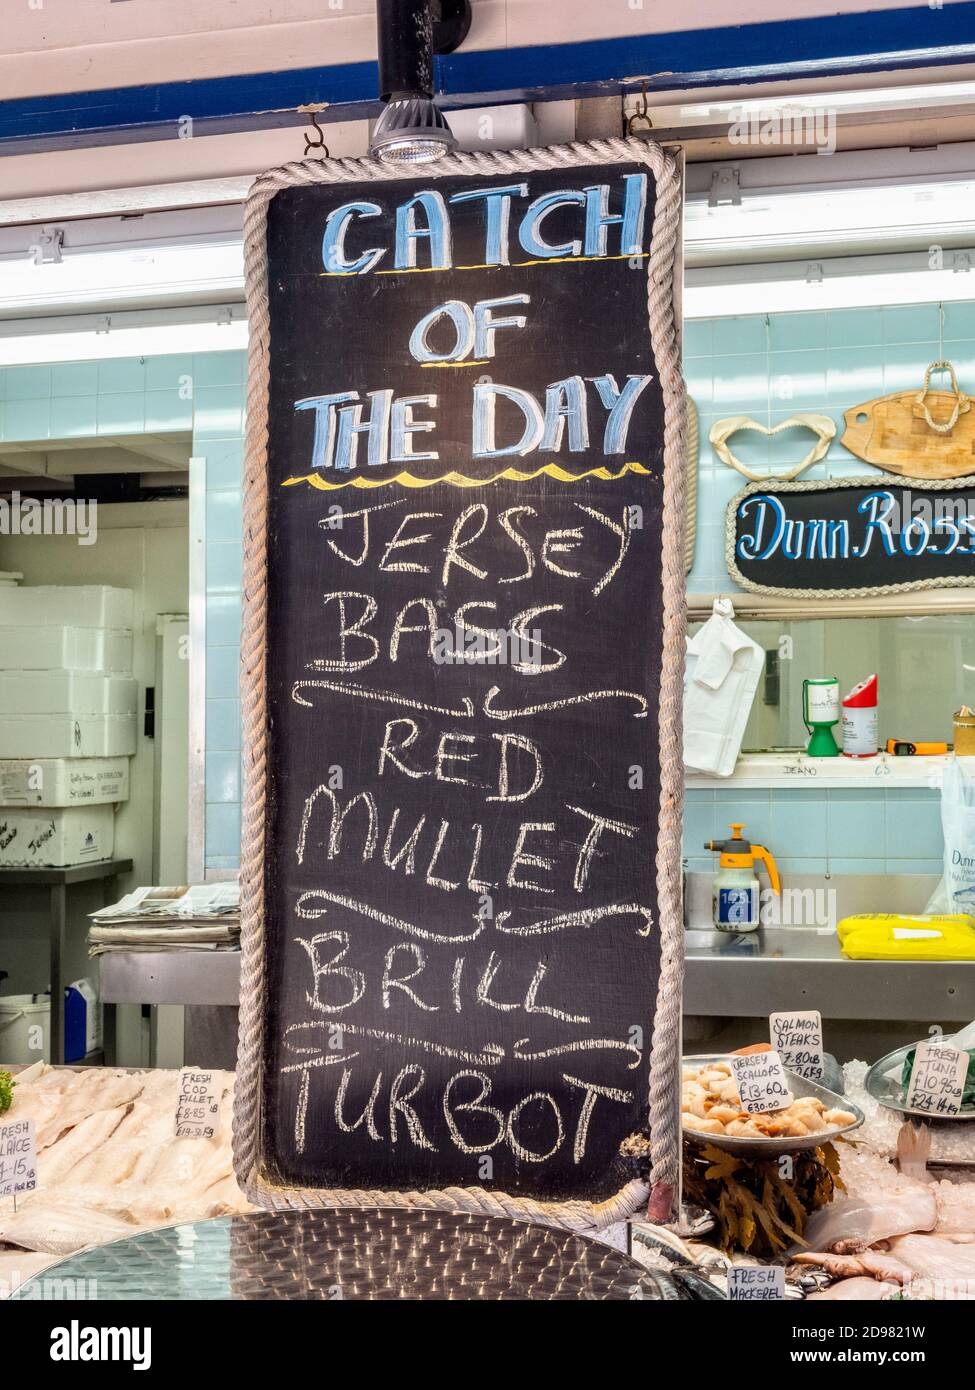 CATCH
OF
THE DAY
JERSEY
BASS
RED
MULLET
BRILL
TURBOT
Dunn.Ross
DEANO
1.25L
Dunn
SALMON
STEAKS
7.80 LB
JERSEY
SCALLOPS
£13-60 LB
€30.00
FRESH
TUNA
£10.95 LB
£24.14 KG
FRESH
COD
FILLET
£8-85 LB
£19-50 KG
FRESH
MACKEREL
JERSEY
alamy
Image ID: 2D9821W
www.alamy.com